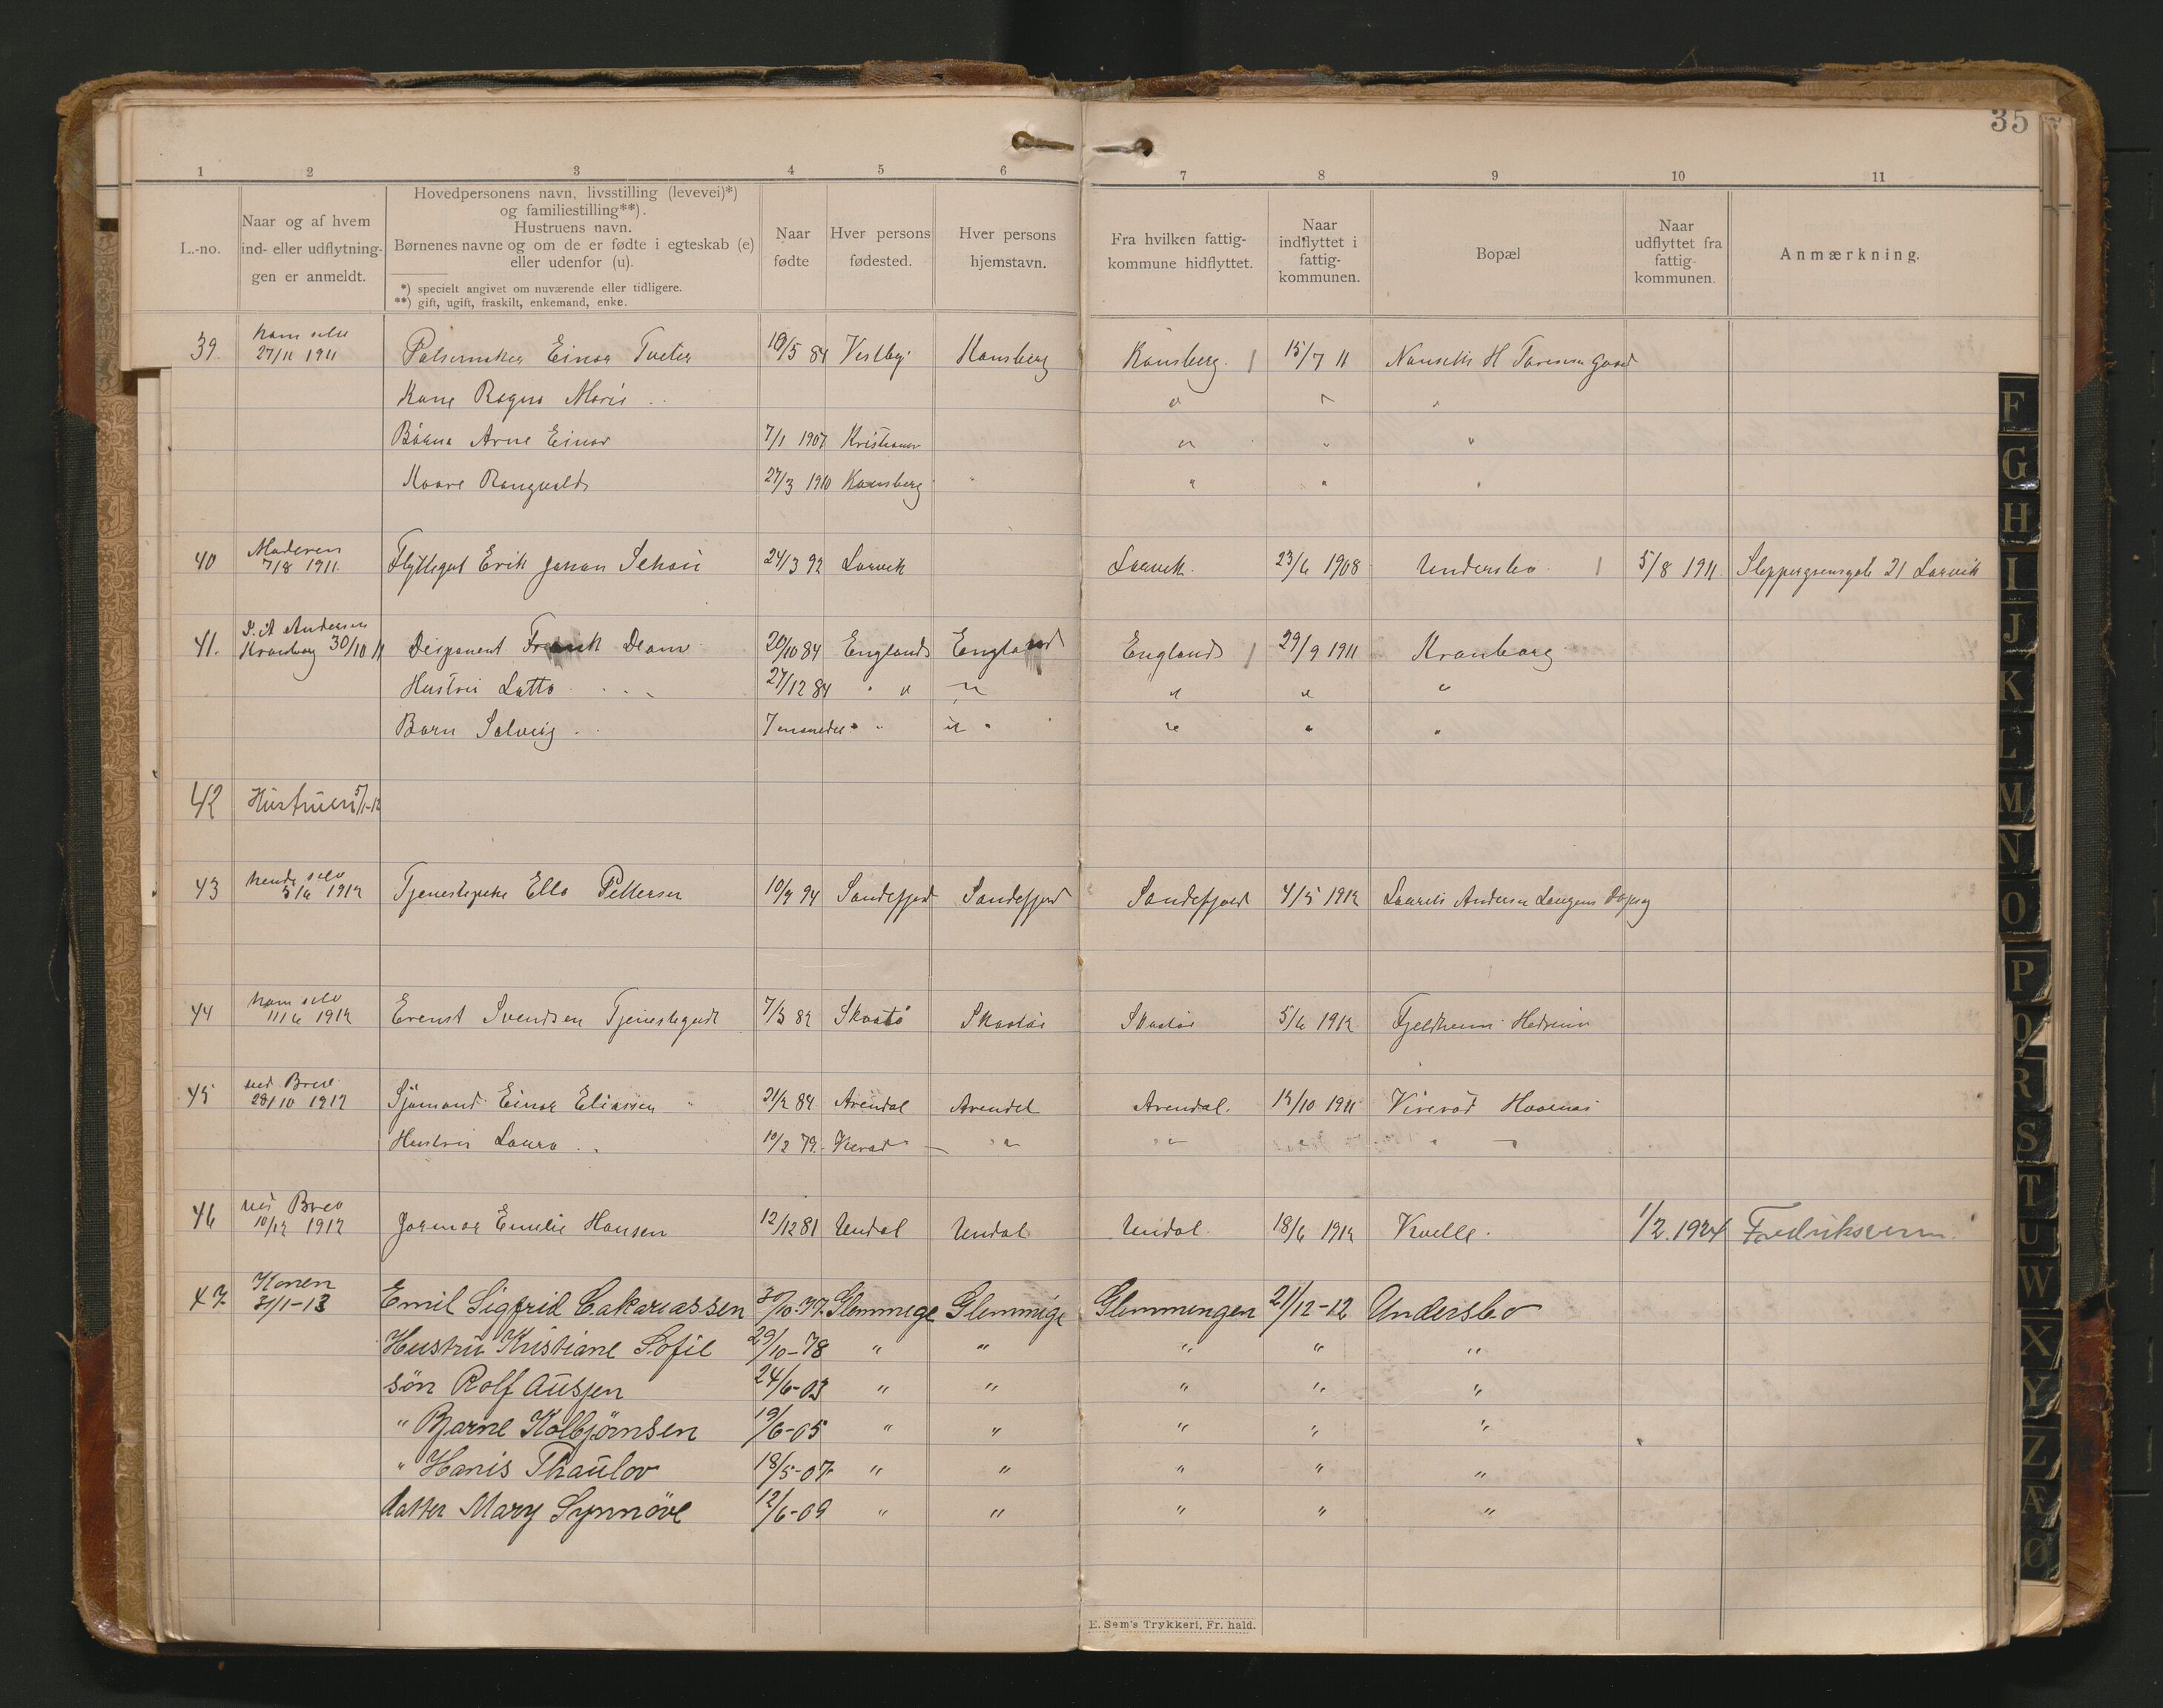 35
1 2 3 4 5 6 7 8 9 10 11
L.-no.
Naar og af hvem
ind- eller udflytnin-
gen er anmeldt.
Hovedpersonens navn, livsstilling (levevei)*)
og familiestilling**).
Hustruens navn.
Børnenes navne og om de er fødte i egteskab (e)
eller udenfor (u).
*) specielt angivet om nuværende eller tidligere.
**) gift, ugift, fraskilt, enkemand, enke.
Naar
fødte
Hver persons
fødested.
Hver persons
hjemstavn.
Fra hvilken fattig-
kommune hidflyttet.
Naar
indflyttet i
fattig-
kommunen.
Bopæl
Naar
udflyttet fra
fattig-
kommunen.
Anmærkning.
ham selv
39. 27/11 1911 Pølsemaker Einar Tveter 18/5 84 Vestby Konsberg Konsberg. 15/7 11 Nanseth H Gaard
Kone Ragna Marie " " "
Børn Arne Einar 7/1 1907 Kristiania " " "
Kaare Rangvald 27/3 1910 Konsberg " " "
Moderen
40 7/8 1911. Erik Johan 24/3 92 Larvik Larvik. 23/6 1908 Undersbo 5/8 1911 21 Larvik
P. A Andersen
41. Kronborg 30/10 11 Disponent Frank Deam 20/10 84 England England England 29/9 1911 Kronborg
Hustru Lotta 27/12 84 " " " " " "
Barn Solveig 7 maneder " " " " " " "
42 Hustruen 5/1-12
hende selv
43 5/6 1912 Tjenestepike Ella Pettersen 10/9 94 Sandefjord Sandefjord Sandefjord 4/5 1912 Laurits Andersen Langens
ham selv
44 11/6 1912 Ernst Svendsen Tjenestegut 7/3 82 Skaatø Skaatø Skaatø 5/6 1912 Fjeldheim Hedrum
ved Brev
45 28/10 1912 Sjømand Einar Eliassen 21/2 84 Arendal Arendal Arendal. 12/10 1911
Hustru Laura 10/2 79. " "
ved Brev
46 10/12 1912 Emelie Hansen 12/12 81 Undal Undal Undal 18/6 1912 Kvelle. 1/2.1924 Fredriksvern.
Konen
47. 31/1-13 Emil Sigfrid Cakariassen 30/10-77. Glemmige Glemmige Glemmingen 21/12-12 Undersbo
Hustru Kristiane Sofie 29/10-78 " " " " "
søn Rolf Ausjen 24/6-03 " " " " "
" Bjarne Kolbjørnsen 19/6-05 " " " " "
" Hanis Thaulov 18/5-07 " " " " "
datter Mary Synnöve 12/6-09 " " " " "
E. Sem's Trykkeri, Fr. hald.
F
G
H
I
J
K
L
M
N
O
P
Q
R
S
T
U
W
X
Y
Z
Æ
Ø